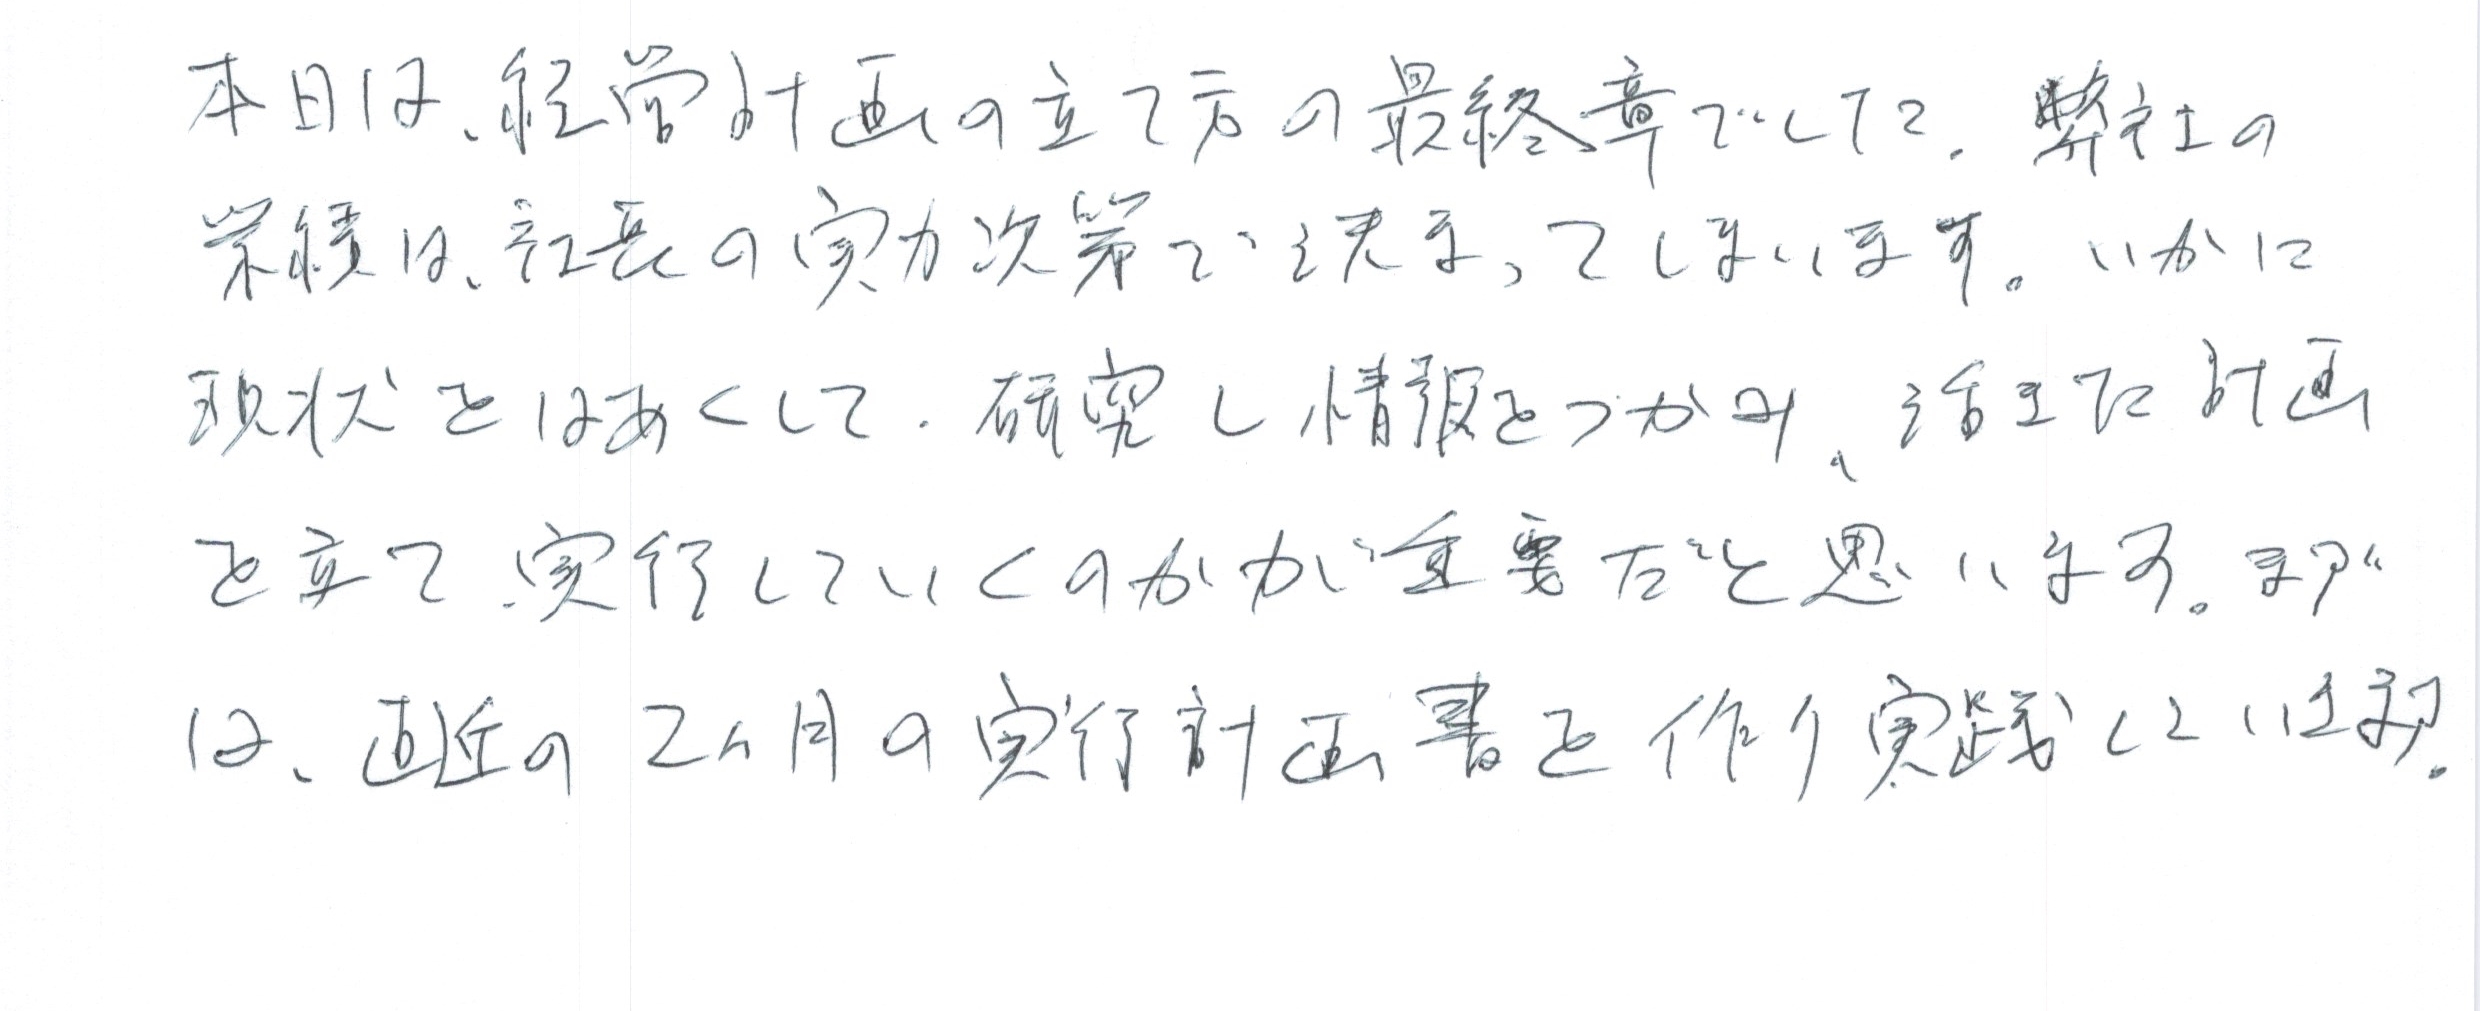 本日は、経営計画の立て方の最終章でした。弊社の
業績は、社長の実力次第で決まってしまいます。いかに
現状をはあくして、研究し情報をつかみ、活きた計画
を立て、実行していくのかが重要だと思います。まず
は、直近の2ヶ月の実行計画書を作り実践していきます。